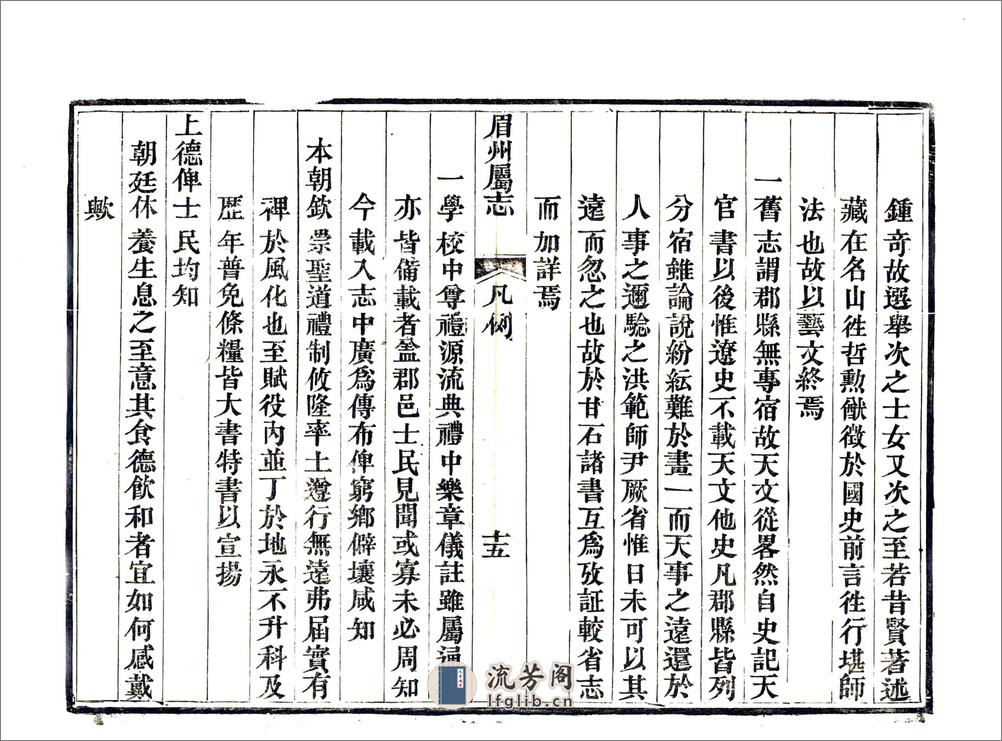 鍾奇故選舉次之士女又次之至若昔賢著述
藏在名山徃哲勲猷徵於國史前言徃行堪師
法也故以藝文終焉
一舊志謂郡縣無專宿故天文從畧然自史記天
官書以後惟遼史不載天文他史凡郡縣皆列
分宿雖論說紛紜難於畫一而天事之遠還於
人事之邇騐之洪範師尹厥省惟日未可以其
遠而忽之也故於甘石諸書互爲攷証較省志
而加詳焉
眉州屬志
凡例
十五
一學校中尊禮源流典禮中樂章儀註雖屬
亦皆備載者葢郡邑士民見聞或寡未必周知
今載入志中廣爲傳布俾窮鄉僻壤咸知
本朝欽崇聖道禮制攸隆率土遵行無遠弗届實有
裨於風化也至賦役內並丁於地永不升科及
歴年普免條糧皆大書特書以宣揚
上德俾士民均知
朝廷休養生息之至意其食德飲和者宜如何感戴
歟
流芳阁
lfglib.com